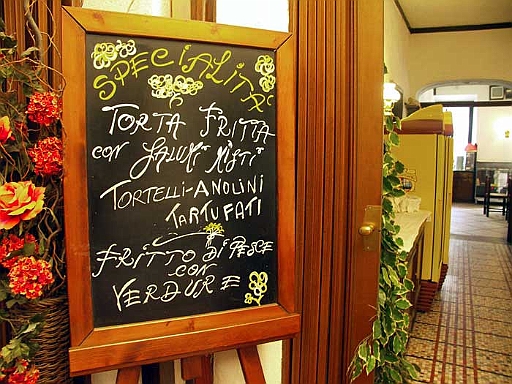 SPECIALITA'
TORTA FRITTA
CON SALUMI MISTI
TORTELLI-ANOLINI
TARTUFATI
FRITTO DI PESCE
CON
VERDURE